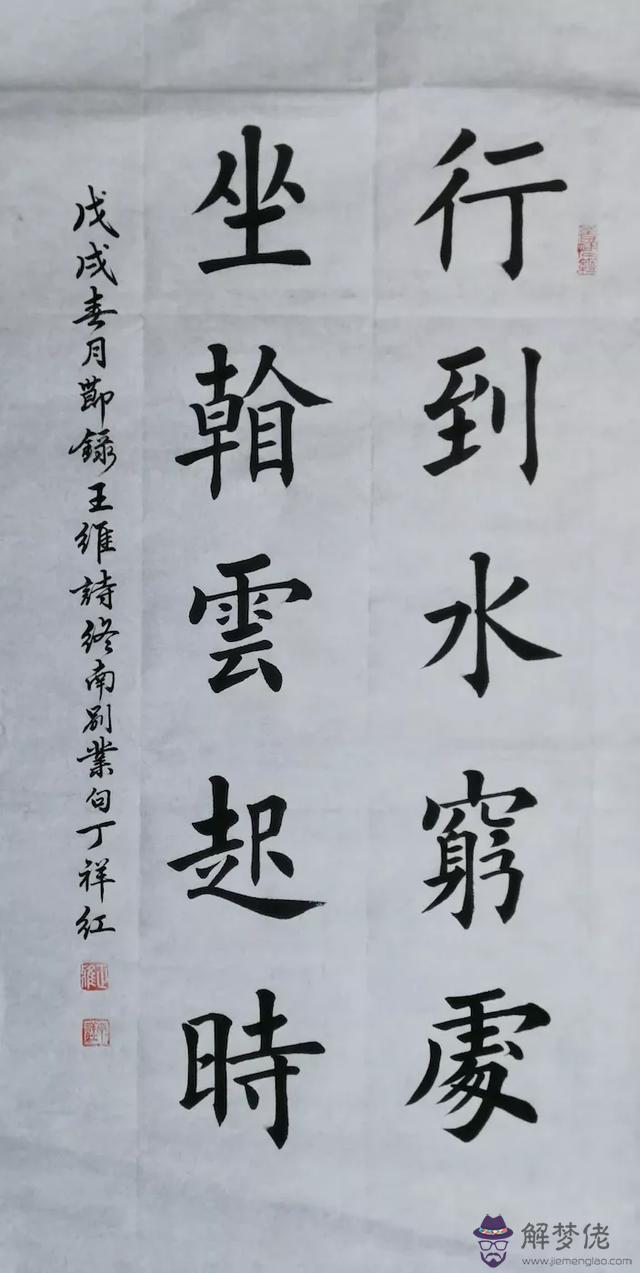 行到水窮處
坐看雲起時
戊戌春月節錄王維詩終南别業句丁祥红
解梦佬
www.jiemenglao.com